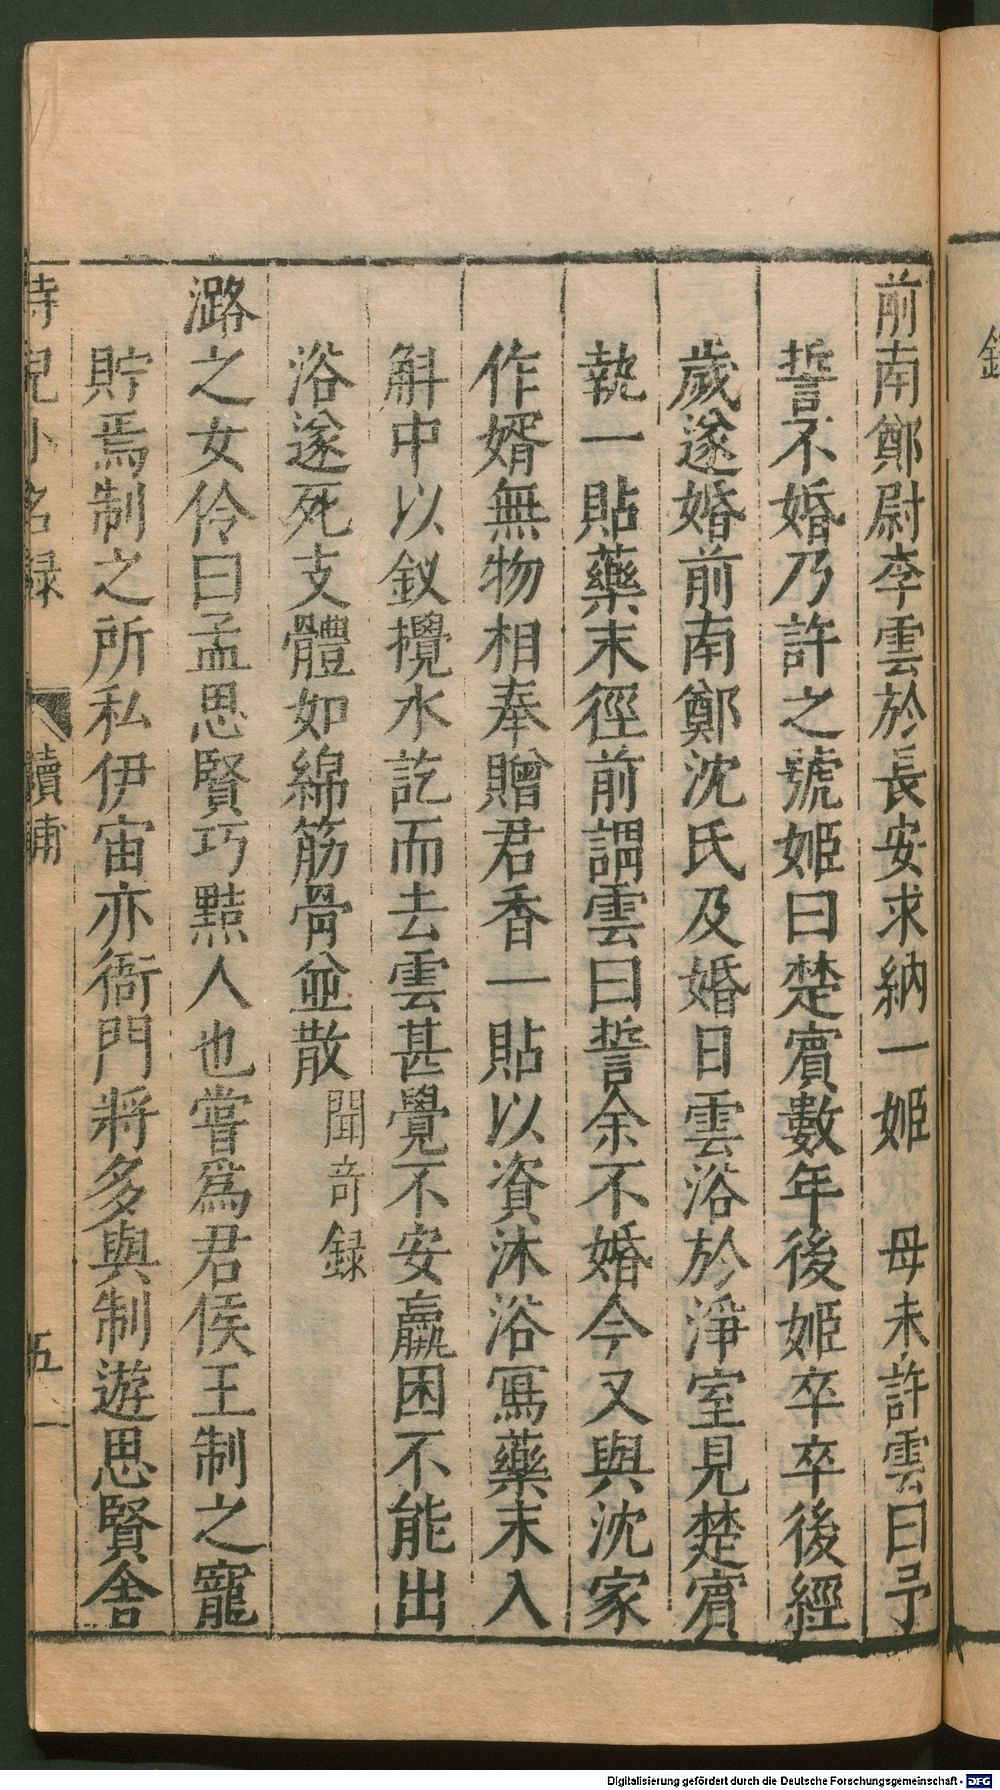 前南鄭尉李雲於長安求納一姬　母未許雲曰予
誓不婚乃許之號姬曰楚賓數年後姬卒卒後經
歲遂婚前南鄭沈氏及婚日雲浴於淨室見楚賓
執一貼藥末徑前謂雲曰誓余不婚今又與沈家
作婿無物相奉贈君香一貼以資沐浴寫藥末入
斛中以釵攪水訖而去雲甚覺不安羸困不能出
浴遂死支體如綿筋骨並散聞奇録
潞之女伶曰孟思賢巧黠人也嘗爲君侯王制之寵
貯焉制之所私伊宙亦衙門將多與制遊思賢舍
侍兒小名録
續補
五
Digitalisierung gefördert durch die Deutsche Forschungsgemeinschaft - DFG